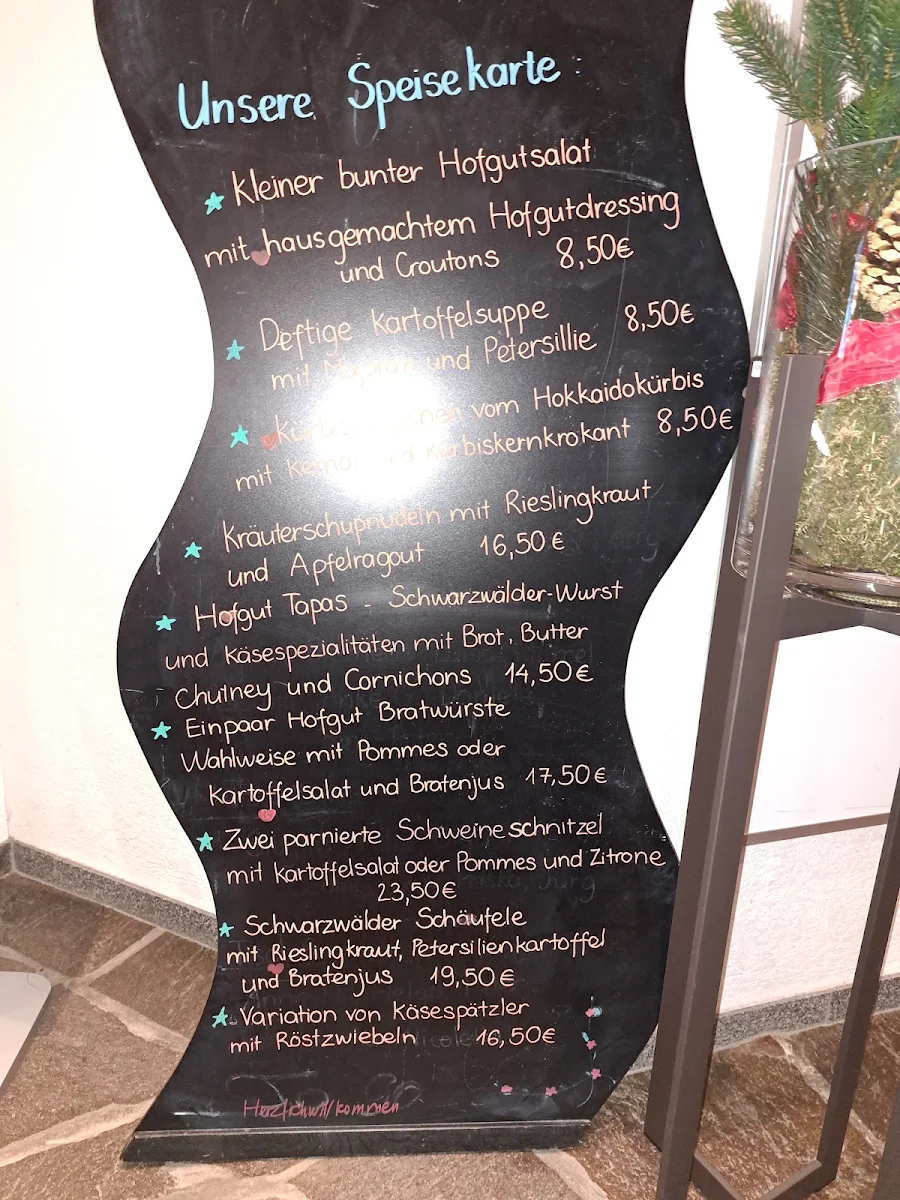 Unsere Speisekarte:
Kleiner bunter Hofgutsalat
mit hausgemachtem Hofgutdressing
und Croutons 8,50€
Deftige Kartoffelsuppe 8,50€
mit und Petersillie
vom Hokkaidokürbis
mit 8,50€
Kräuterschupfnudeln mit Rieslingkraut
und Apfelragout 16,50€
Hofgut Tapas - Schwarzwälder-Wurst
und Käsespezialitäten mit Brot, Butter
Chutney und Cornichons 14,50€
Einpaar Hofgut Bratwürste
Wahlweise mit Pommes oder
Kartoffelsalat und Bratenjus 17,50€
Zwei parnierte Schweineschnitzel
mit Kartoffelsalat oder Pommes und Zitrone
23,50€
Schwarzwälder Schäufele
mit Rieslingkraut, Petersilienkartoffel
und Bratenjus 19,50€
Variation von Käsespätzler
mit Röstzwiebeln 16,50€
Herzlichwillkommen